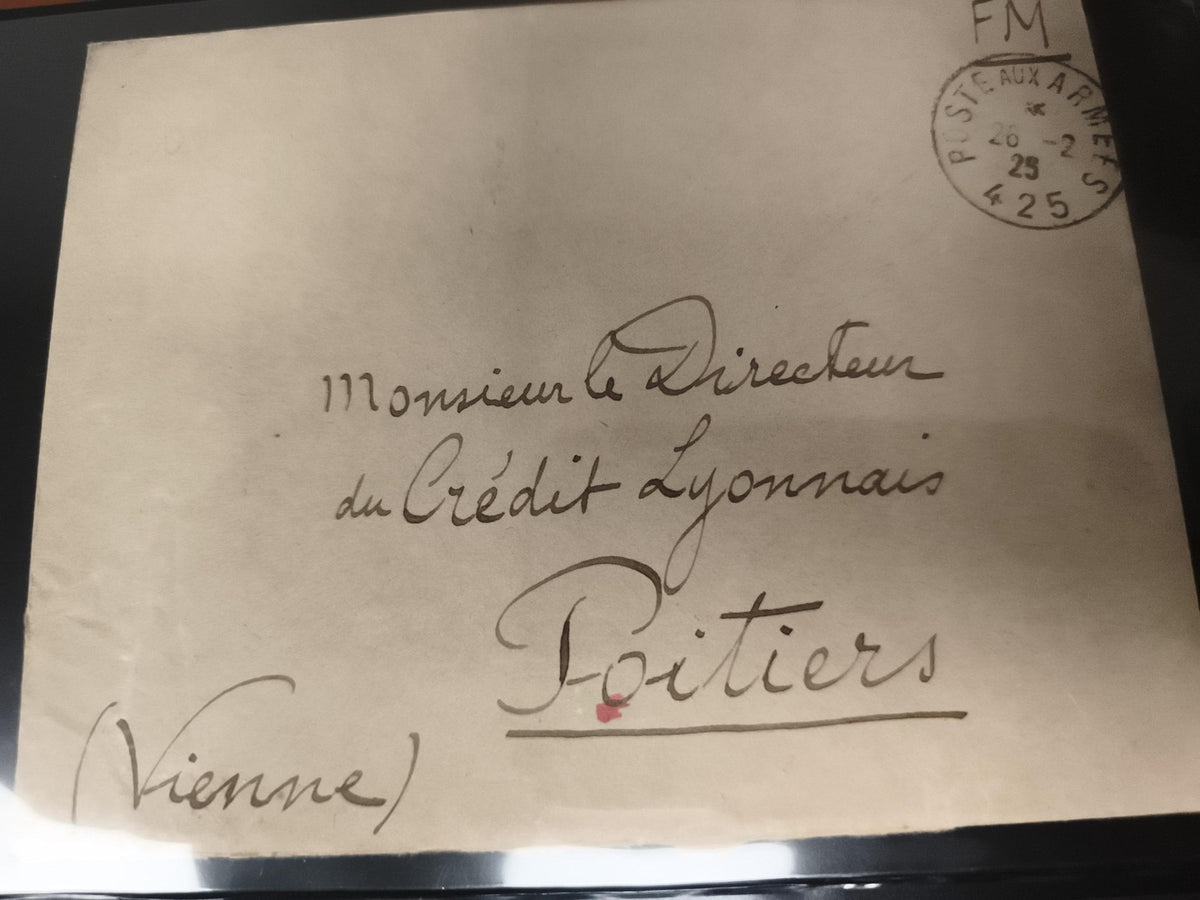 FM
POSTE AUX ARMEES
*
26 -2
25
425
Monsieur le Directeur
du Crédit Lyonnais
Poitiers
(Vienne)